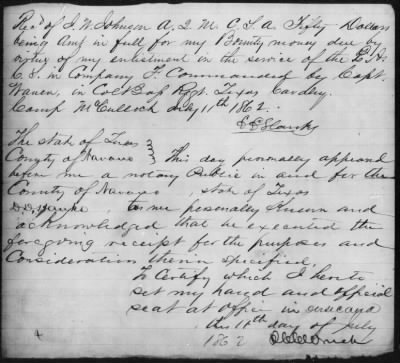 Rec'd of J. W. Johnson A, Q. M. C. S. A. Fifty Dollars
being Amt in full for my Bounty money due by
virtue of my enlistment in the service of the
C.S. in Company F. Commanded by Capt.
in Col Rgt. Texas Cavalry.
Camp McCulloch July 11th 1862.
The State of Texas
County of Navarro } This day personally appeared
before me a notary Public in and for the
County of Navarro, State of Texas
to me personally Known and
acknowledged that he executed the
foregoing receipt for the purposes and
Consideration therein specified.
To Certify which I hereto
set my hand and official
seal at office in
this 11th day of July
1862